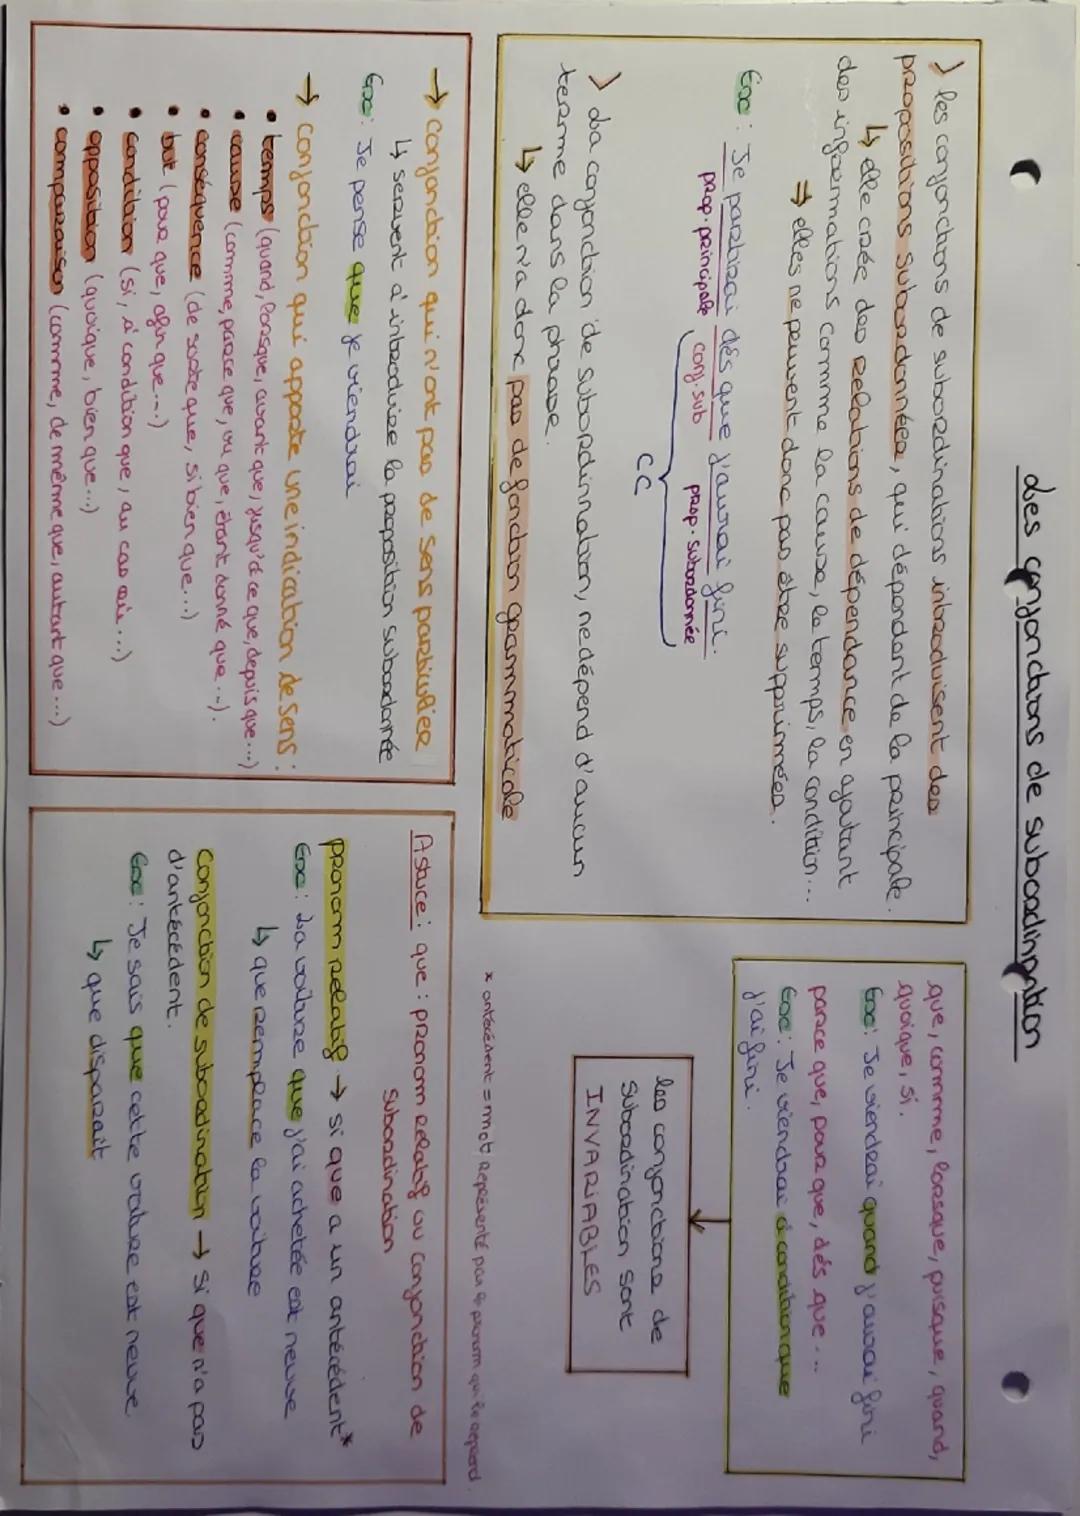 Les conjonctions de subordination
> les conjonctions de subordinations introduisent des
propositions subordonnées, qui dépendent de la principale.
↳ elle crée des relations de dépendance en ajoutant
des informations comme la cause, le temps, la condition...
⇒ elles ne peuvent donc pas être supprimées.
Exe : Je partirai dès que j'aurai fini.
prop. principale conj. sub prop. subordonnée
CC
> La conjonction de subordinnation, ne dépend d'aucun
terme dans la phrase.
↳ elle n'a donc pas de fonction grammaticale
que, comme, lorsque, puisque, quand,
quoique, si.
Exe : Je viendrai quand j'aurai fini
parce que, pour que, dés que...
Exe : Je viendrai à condition que
j'ai fini.
les conjonctions de
subordination sont
INVARIABLES
→ conjonction qui n'ont pas de sens particulier
↳ servent à introduire la proposition subordonnée
Exe : Je pense que je viendrai
→ conjonction qui apporte une indication de sens :
• temps (quand, lorsque, avant que, jusqu'à ce que, depuis que...)
• cause (comme, parce que, vu que, étant donné que...).
• conséquence (de sorte que, si bien que...)
• but (pour que, afin que...)
• condition (si, à condition que, au cas où...)
• opposition (quoique, bien que...)
• comparaison (comme, de même que, autant que...)
* antécédent = mot représenté par le pronom qui le reprend.
Astuce : que : pronom relatif ou conjonction de
subordination
pronom relatif → si que a un antécédent*
Exe : La voiture que j'ai achetée est neuve
↳ que remplace la voiture
Conjonction de subordination → si que n'a pas
d'antécédent.
Exe : Je sais que cette voiture est neuve
↳ que disparait